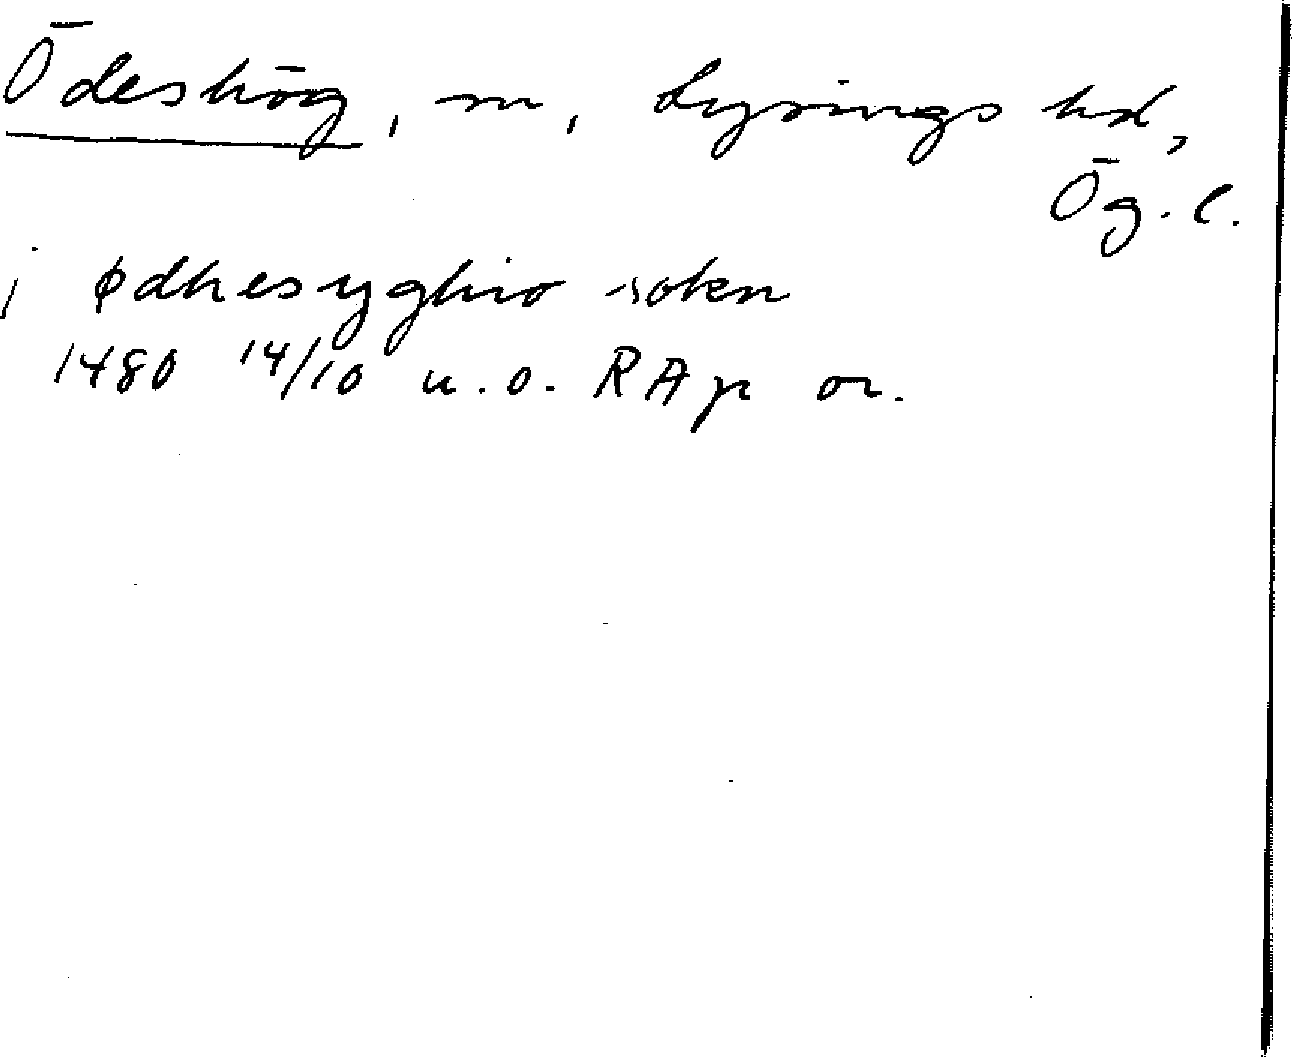 Ödeshög, sn, Lysings hd,
Ög. l.
j ødhesyghio sokn
1480 14/10 u.o. RAp or.